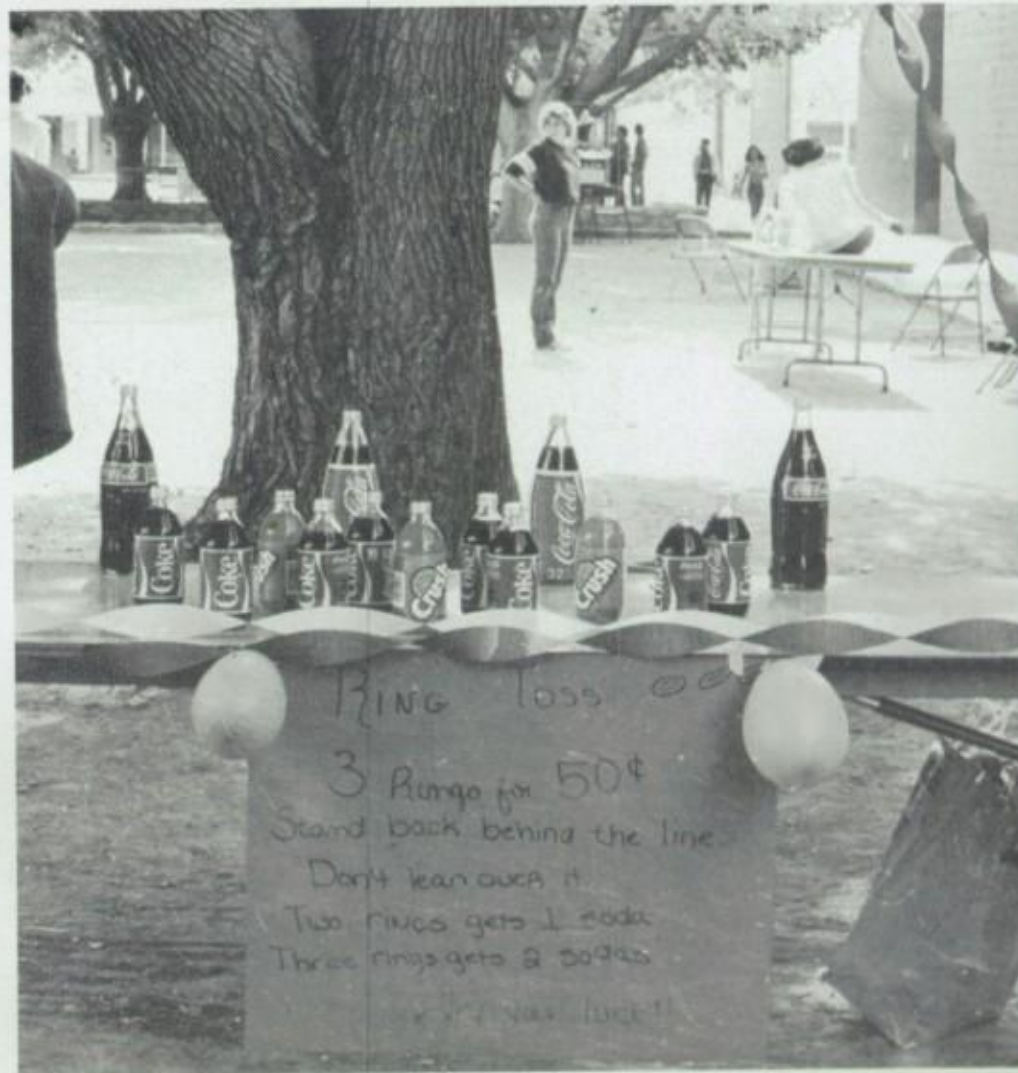 Coca-Cola
Coca-Cola
32
Coca-Cola
Coke
Coke
Coke
Crush
Coke
Coke
Crush
RING TOSS
3 Rings for 50¢
Stand back behind the line.
Don't lean over it.
Two rings gets 1 soda
Three rings gets 2 sodas
your luck!!